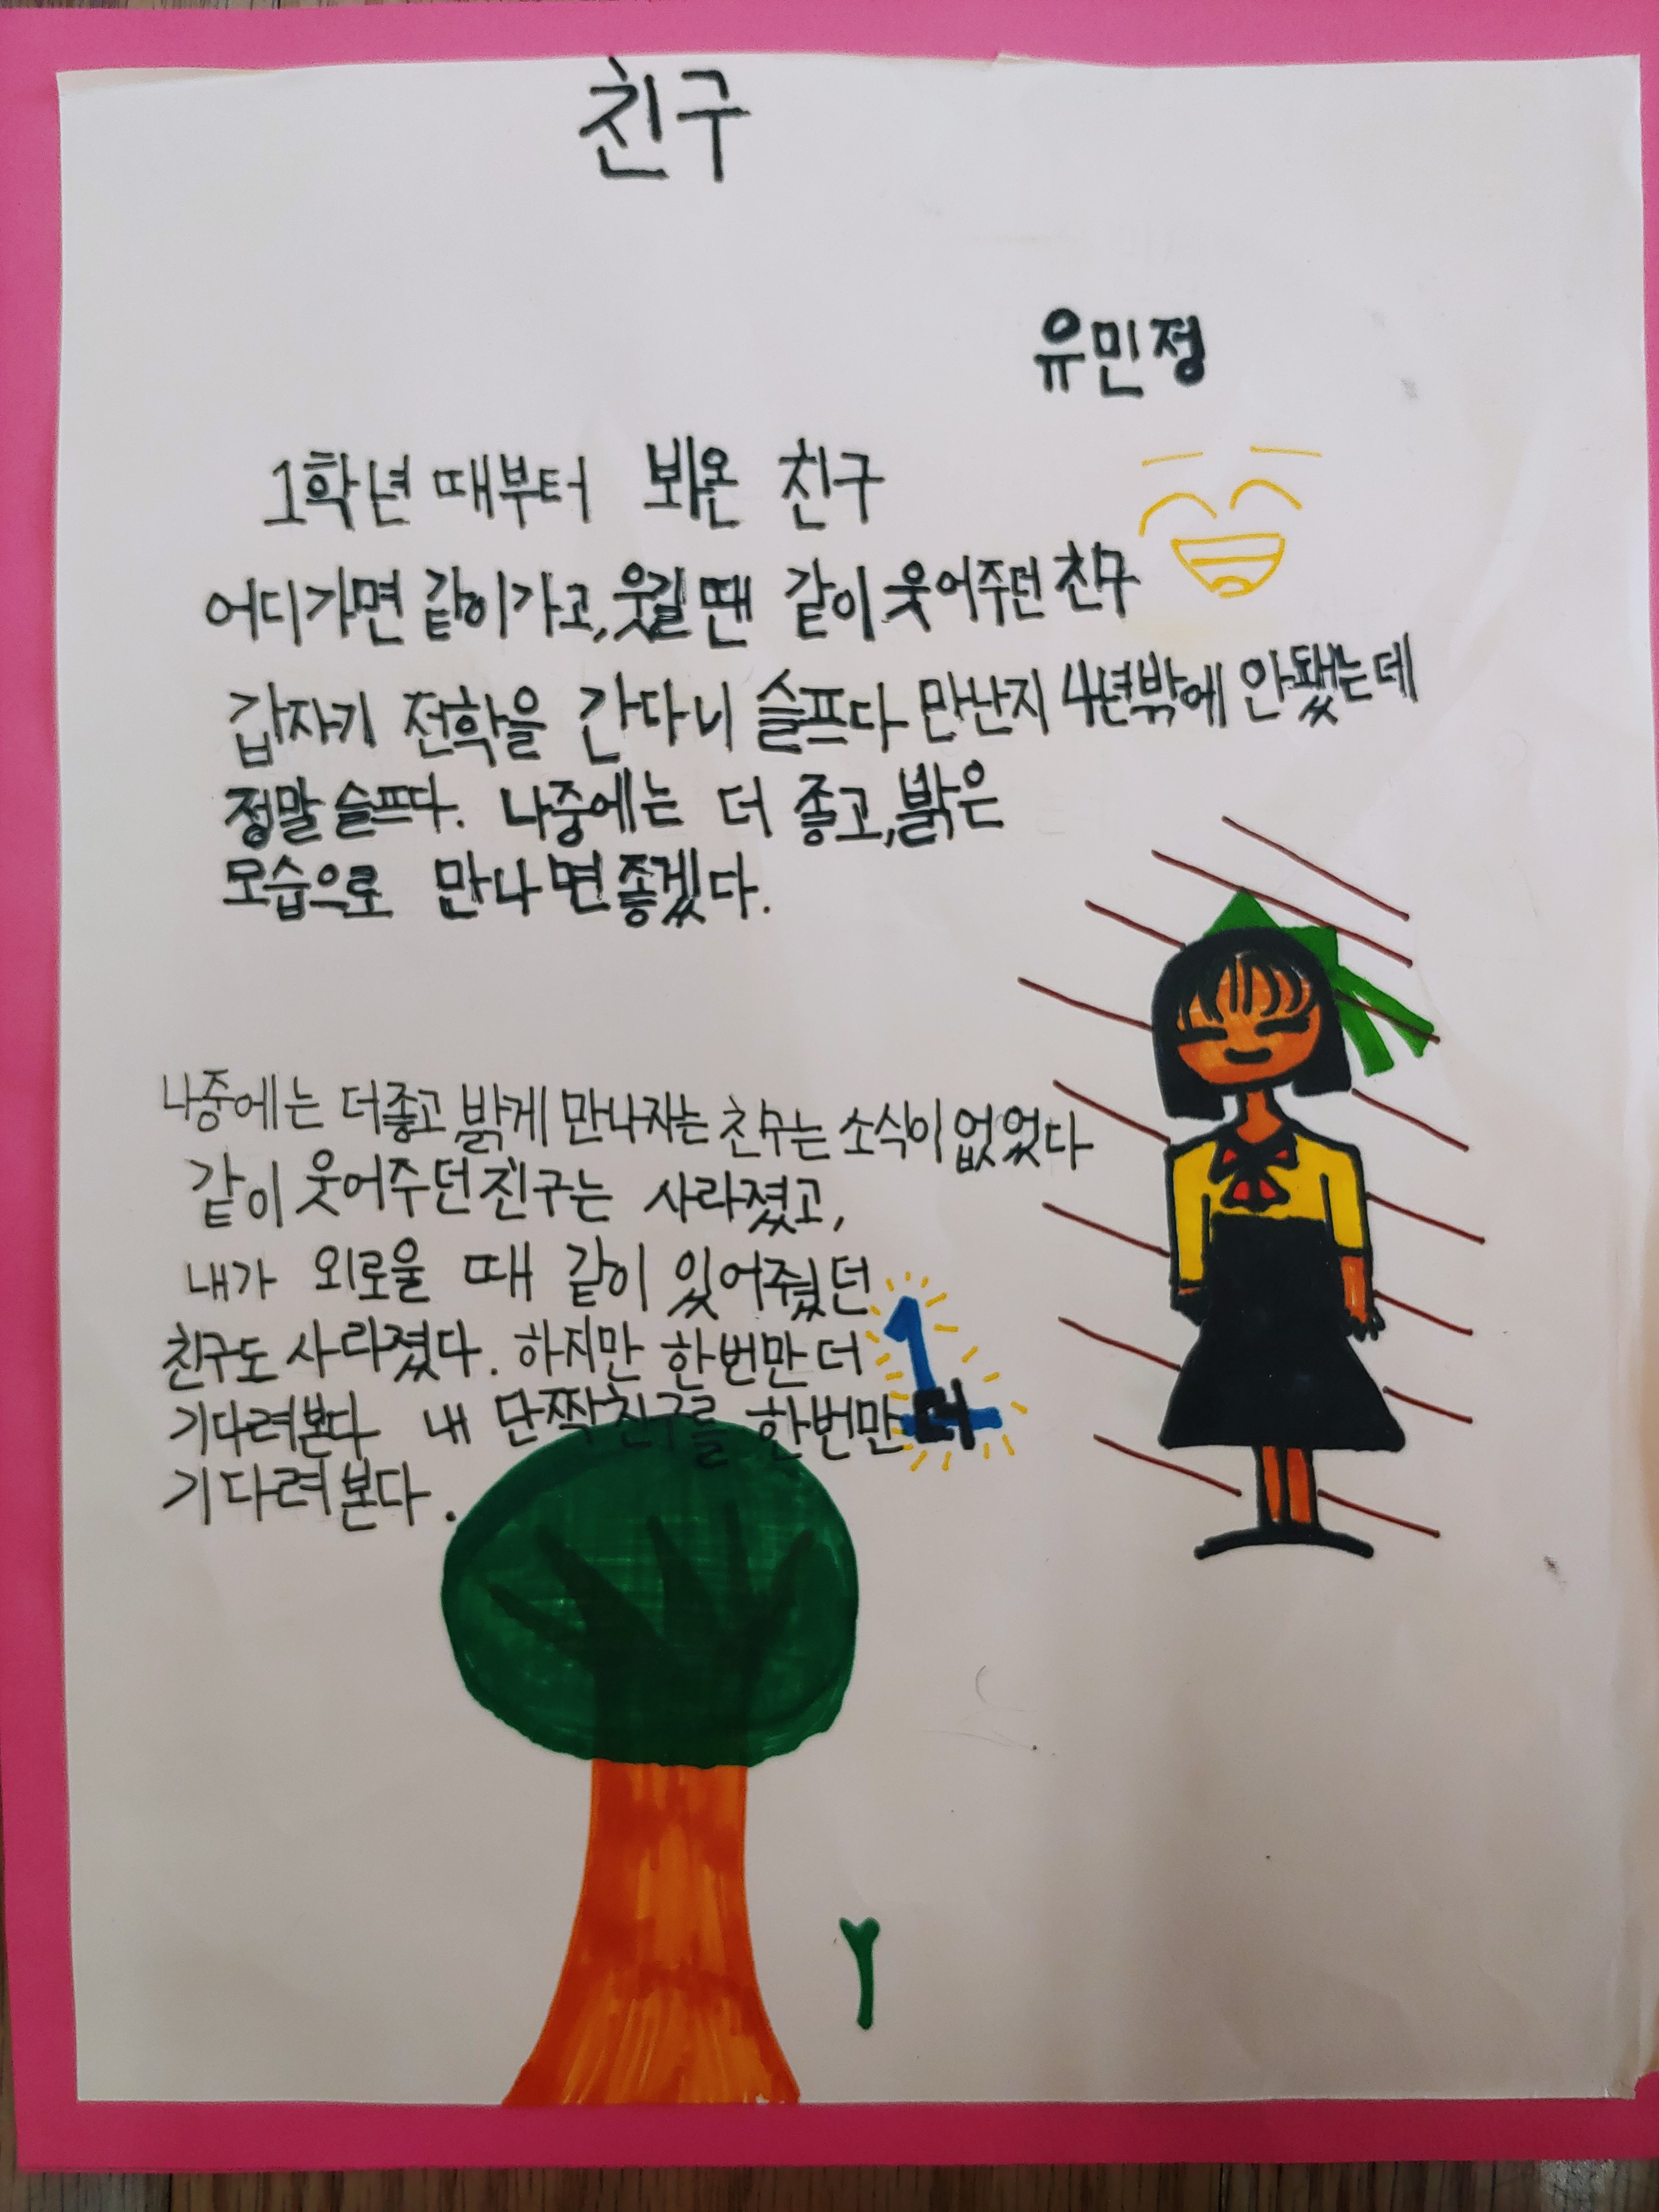 친구
유민정
1학년 때부터 봬온 친구
어디가면 같이가고, 웃길 땐 같이 웃어주던 친구
갑자기 전학을 간다니 슬프다 만난지 4년밖에 안됐는데
정말 슬프다. 나중에는 더 좋고, 밝은
모습으로 만나면 좋겠다.
나중에는 더좋고 밝게 만나자는 친구는 소식이 없었다
같이 웃어주던 친구는 사라졌고,
내가 외로울 때 같이 있어줬던
친구도 사라졌다. 하지만 한번만 더
기다려본다 내 단짝친구를 한번만 더
기다려본다.
1